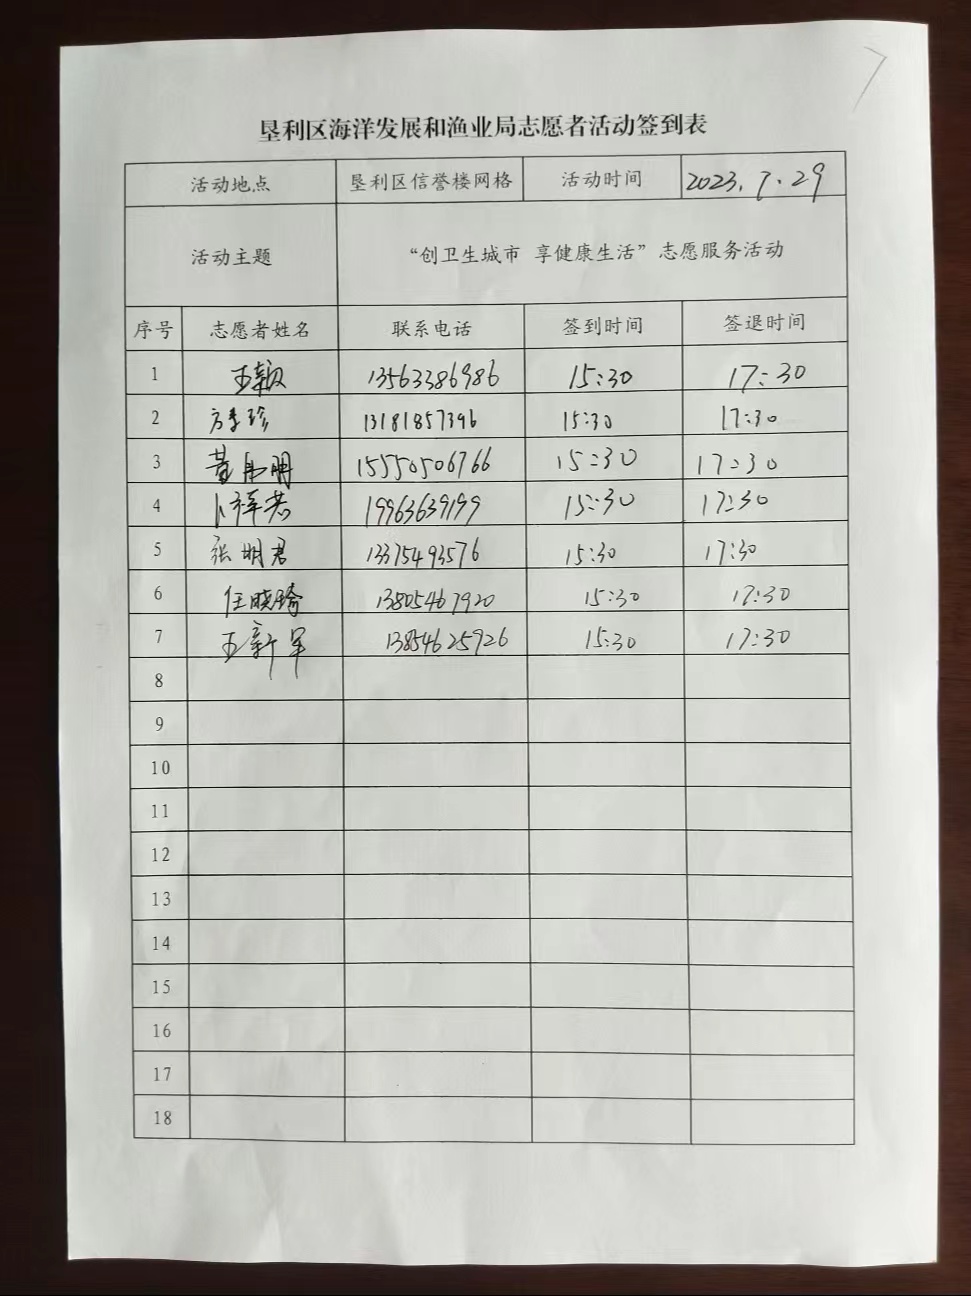 垦利区海洋发展和渔业局志愿者活动签到表
活动地点 垦利区信誉楼网格 活动时间 2023.7.29
活动主题 “创卫生城市 享健康生活”志愿服务活动
序号 志愿者姓名 联系电话 签到时间 签退时间
1 王颖 13563386986 15:30 17:30
2 方季珍 13181857396 15:30 17:30
3 15550506766 15:30 17:30
4 卜祥君 19963639199 15:30 17:30
5 张明君 13375493576 15:30 17:30
6 任晓瑜 13805467920 15:30 17:30
7 王新军 13854625926 15:30 17:30
8
9
10
11
12
13
14
15
16
17
18